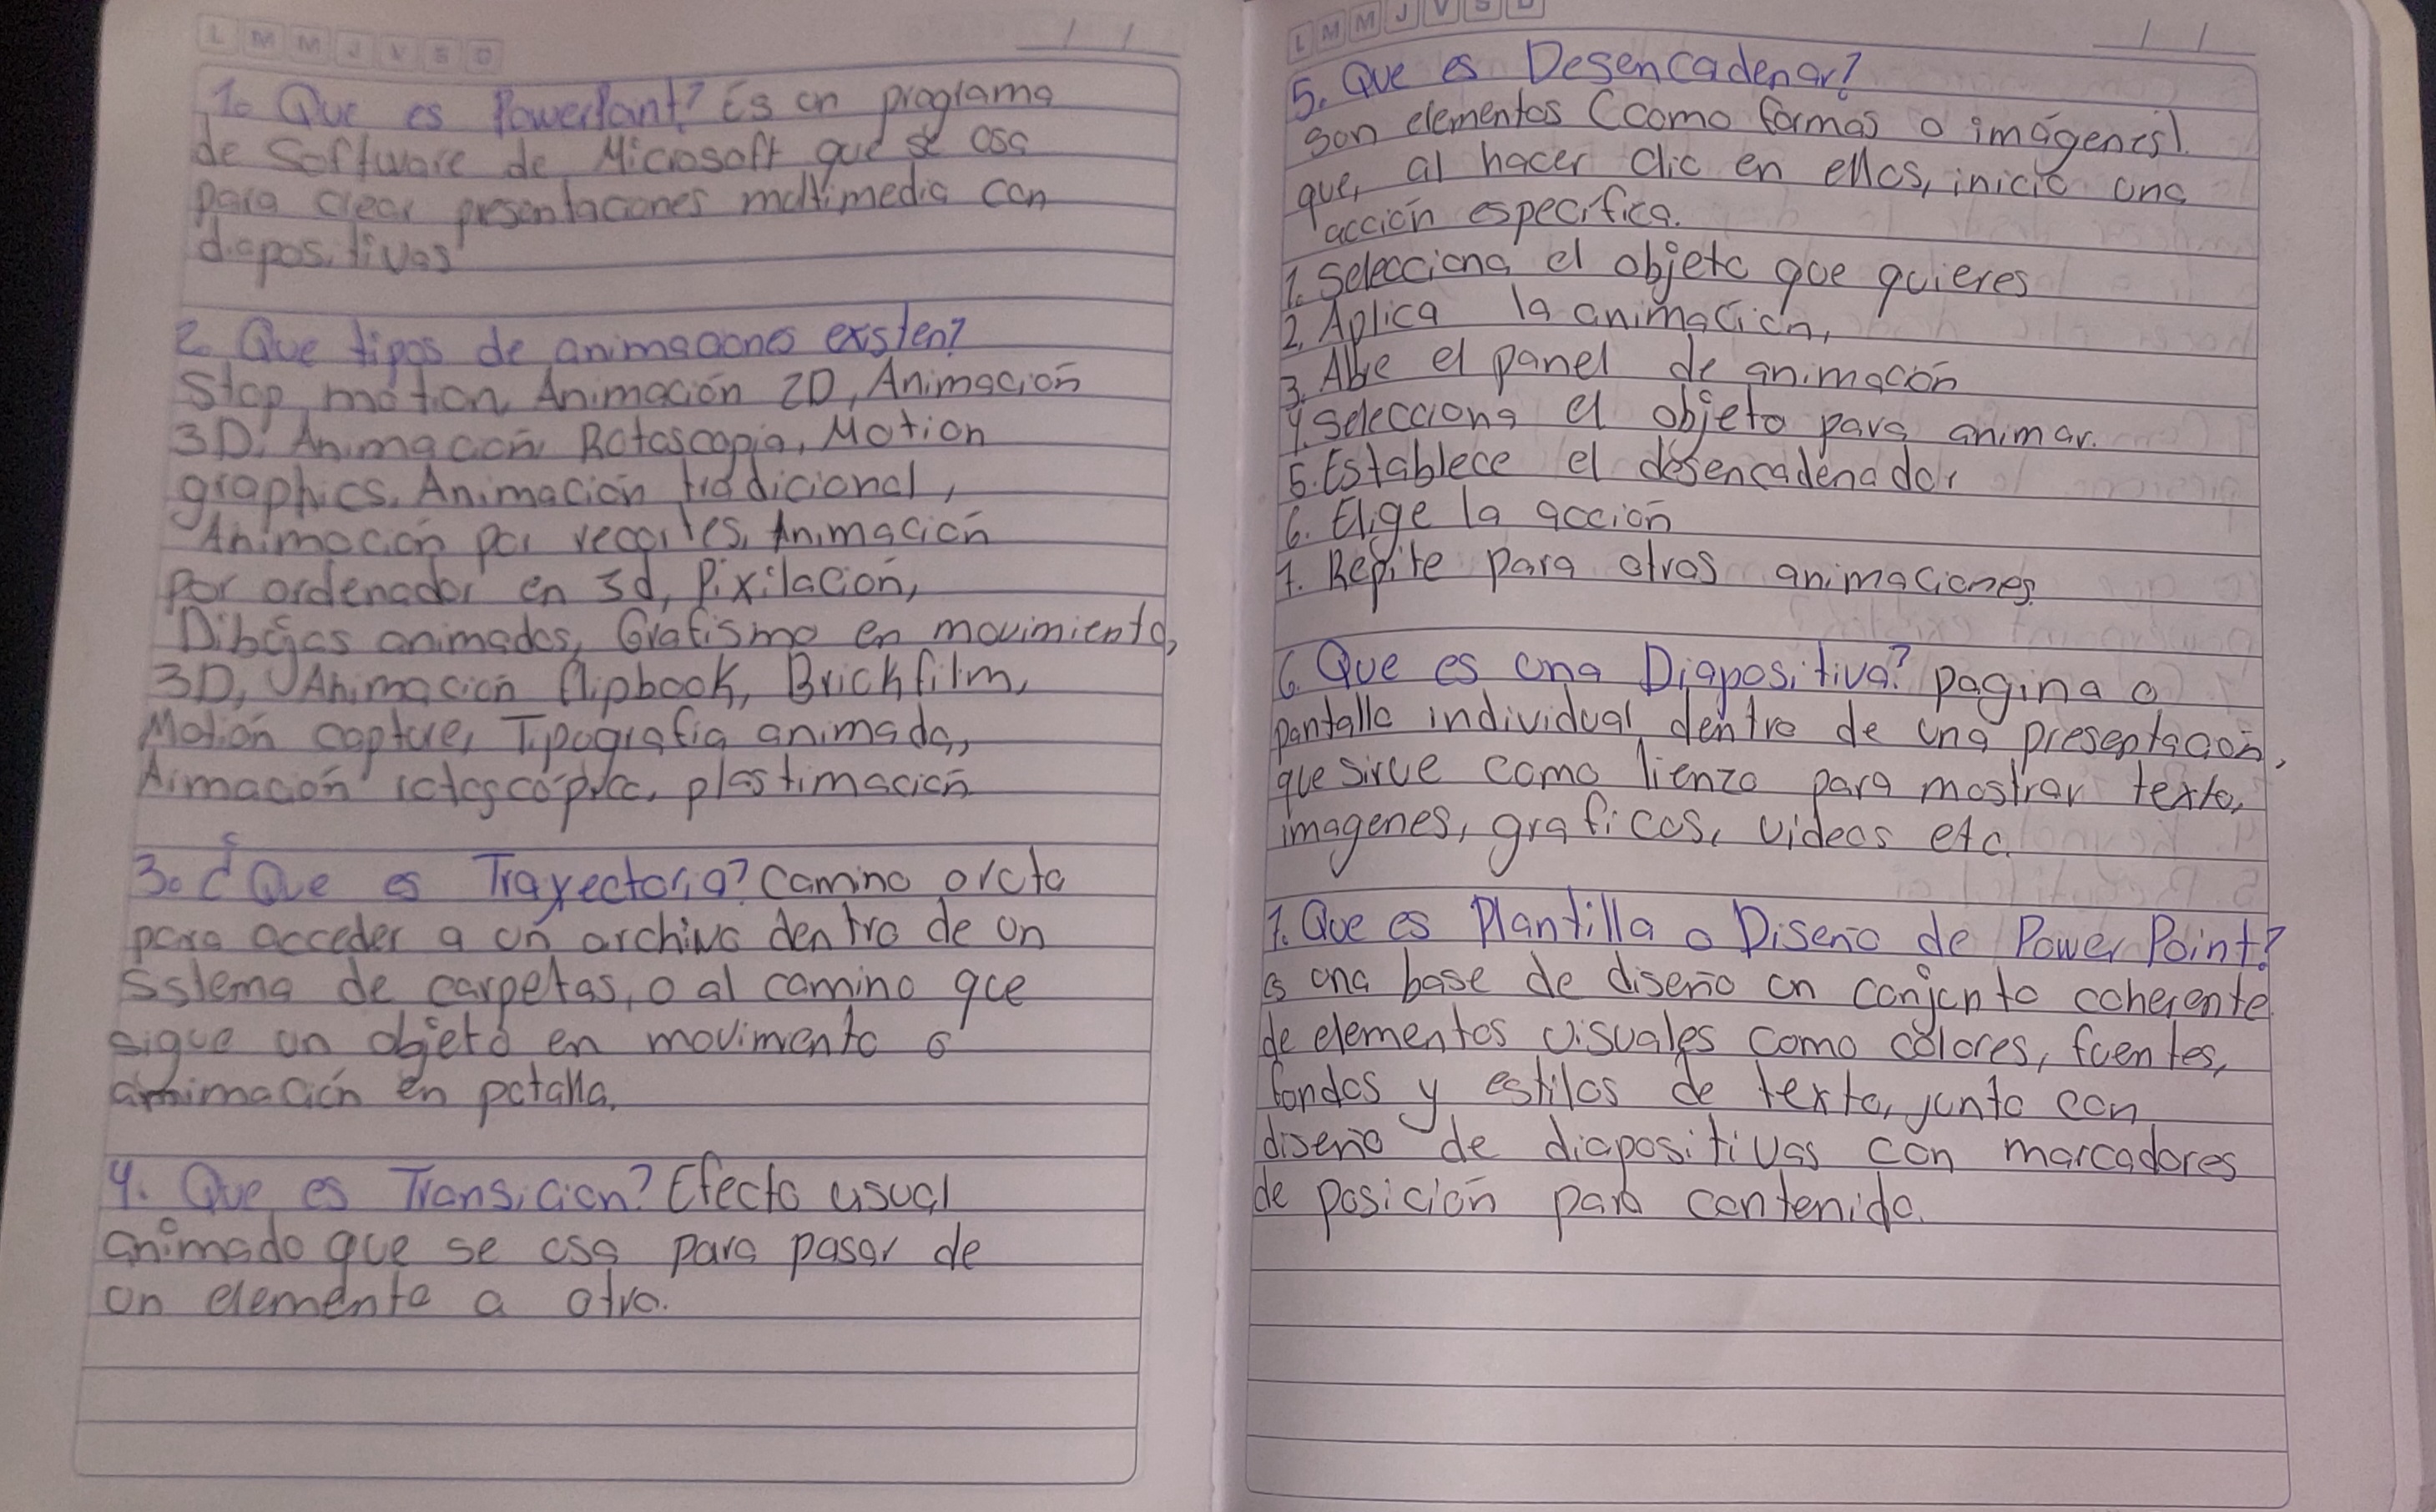 L M M J V S D
1. Que es PowerPoint? Es un programa
de Software de Microsoft que se usa
para crear presentaciones multimedia con
diapositivas
2. Que tipos de animaciones existen?
Stop motion, Animación 2D, Animación
3D, Animación Rotoscopia, Motion
graphics, Animación tradicional,
Animación por recortes, Animación
por ordenador en 3d, Pixilación,
Dibujos animados, Grafismo en movimiento,
3D, Animación flipbook, Brickfilm,
Motion capture, Tipografia animada,
Aimación rotoscópica, plastimación
3. ¿Que es Trayectoria? Camino o ruta
para acceder a un archivo dentro de un
Sistema de carpetas, o al camino que
sigue un objeto en movimiento o
animación en patalla.
4. Que es Transicion? Efecto usual
animado que se usa para pasar de
un elemento a otro.
L M M J V S D
5. Que es Desencadenar?
Son elementos (como formas o imágenes)
que, al hacer clic en ellos, inicia una
acción especifica.
1. Selecciona el objeto que quieres
2. Aplica la animación,
3. Abre el panel de animación
4. Selecciona el objeto para animar.
5. Establece el desencadenador
6. Elige la acción
7. Repite para otras animaciones.
6. Que es una Diapositiva? pagina o
pantalla individual dentro de una presentación,
que sirve como lienzo para mostrar texto,
imagenes, graficos, videos etc.
7. Que es Plantilla o Diseño de PowerPoint?
es una base de diseño un conjunto coherente
de elementos visuales como colores, fuentes,
fondos y estilos de texto, junto con
diseño de diapositivas con marcadores
de posición para contenido.